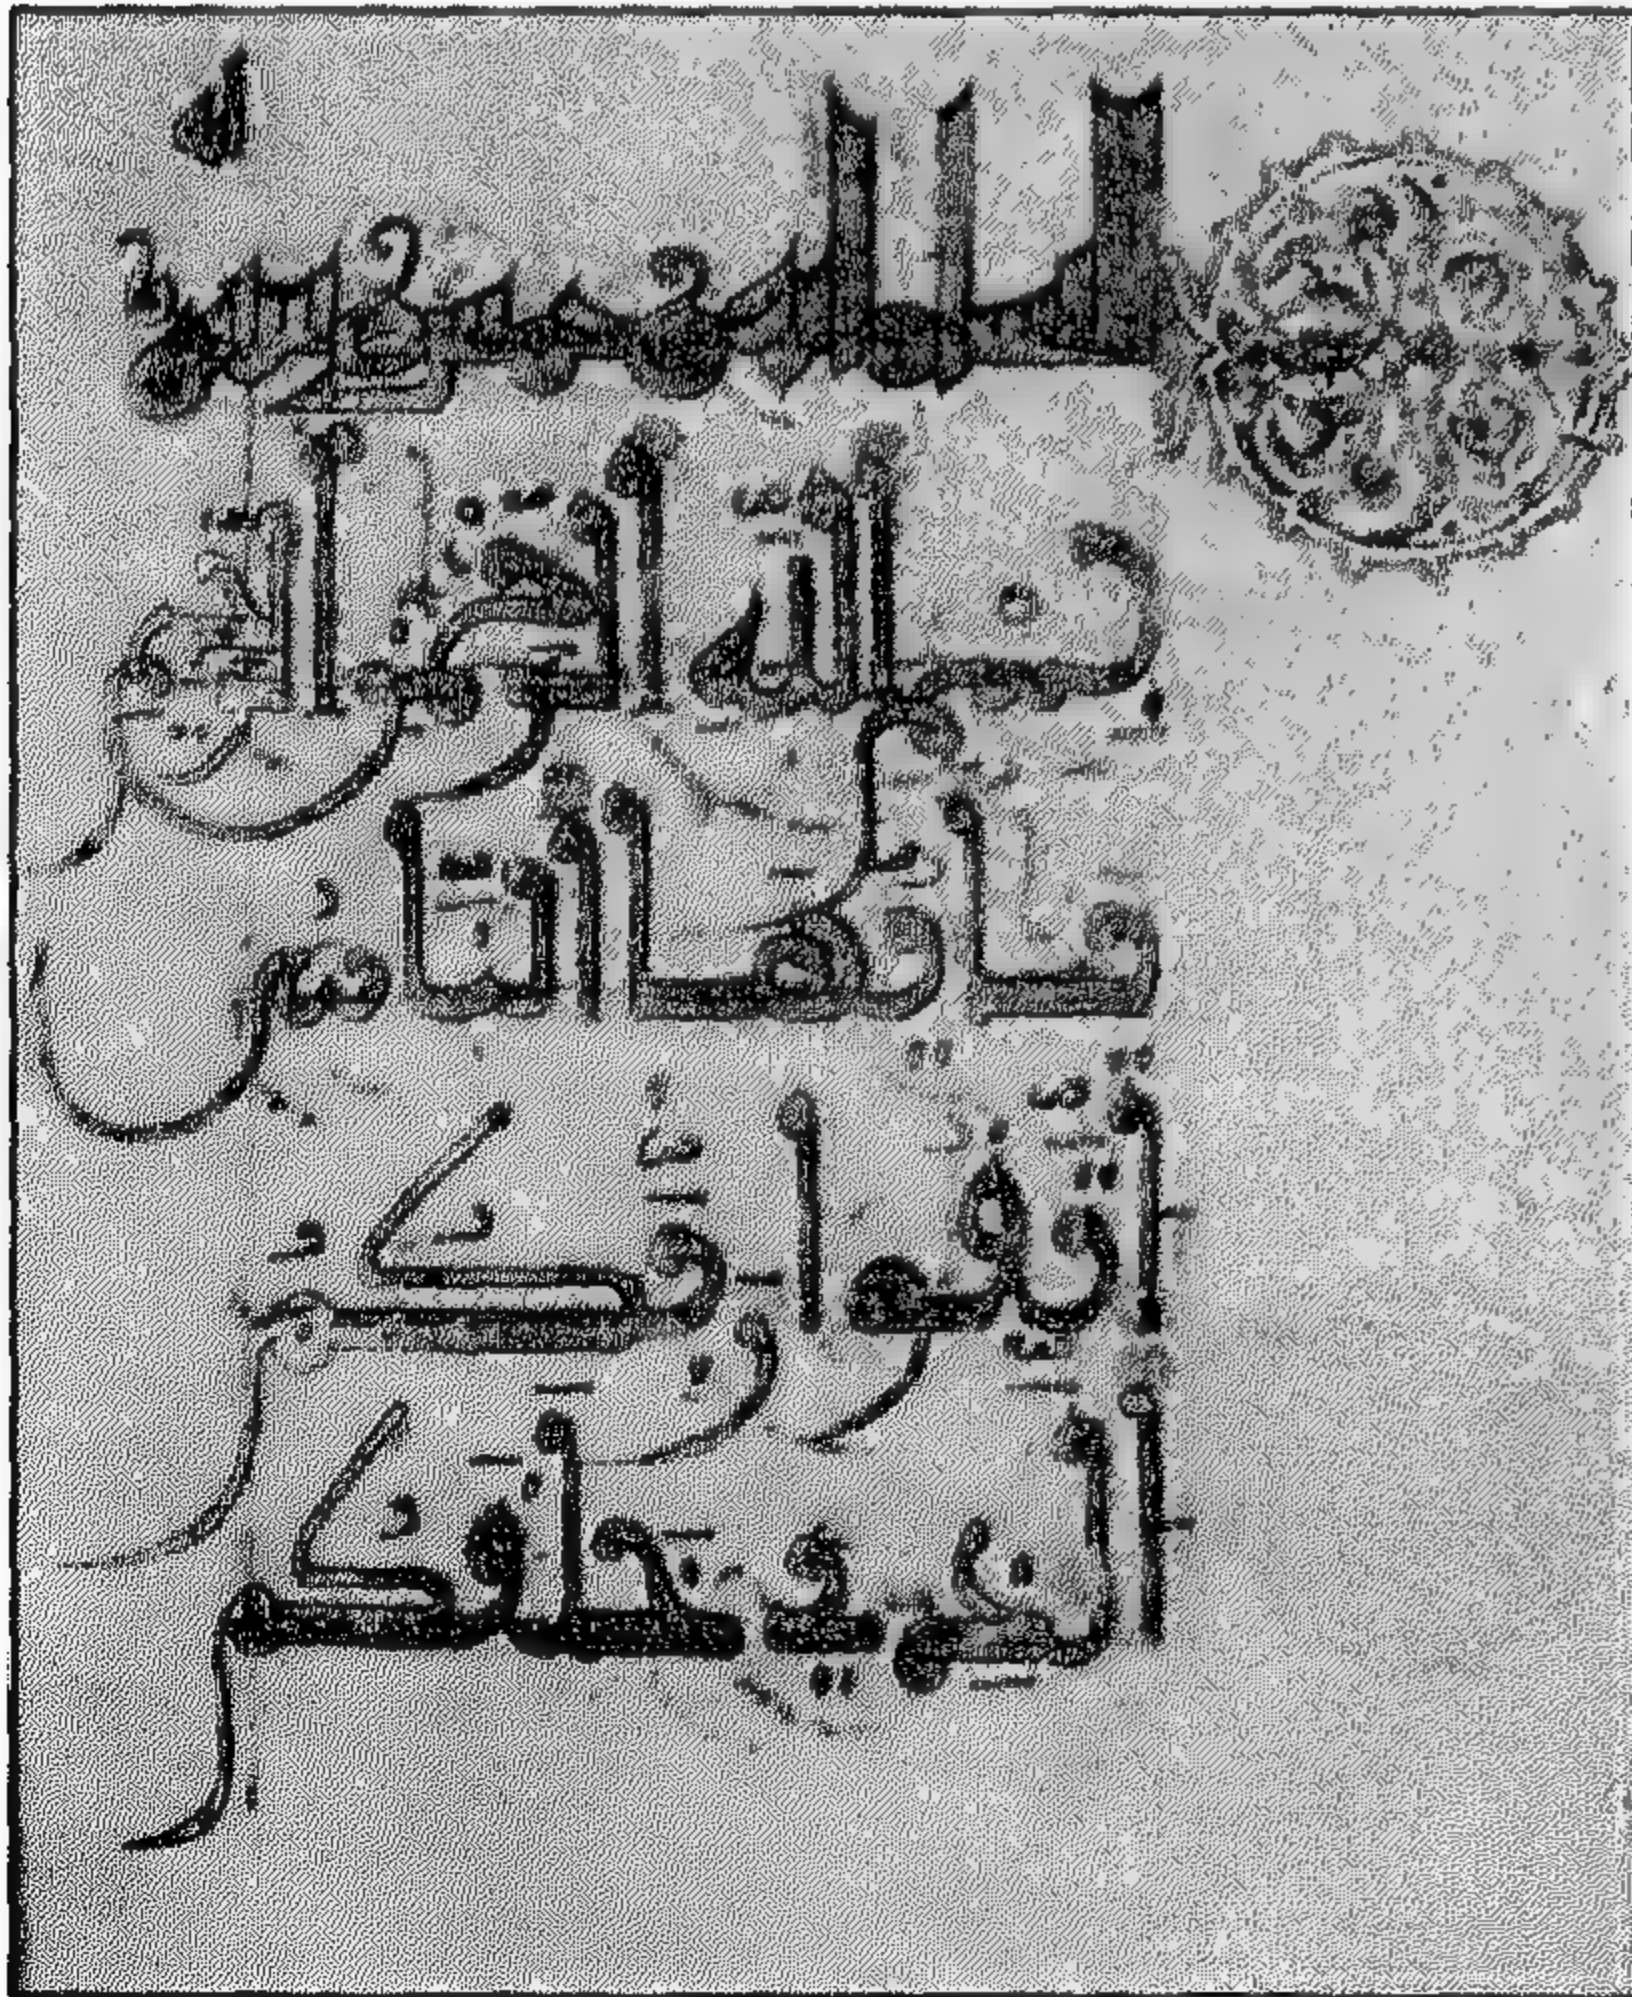 بسم الله الرحمن الرحيم
يَا أَيُّهَا النَّاسُ
اتَّقُوا رَبَّكُمُ
الَّذِي خَلَقَكُم